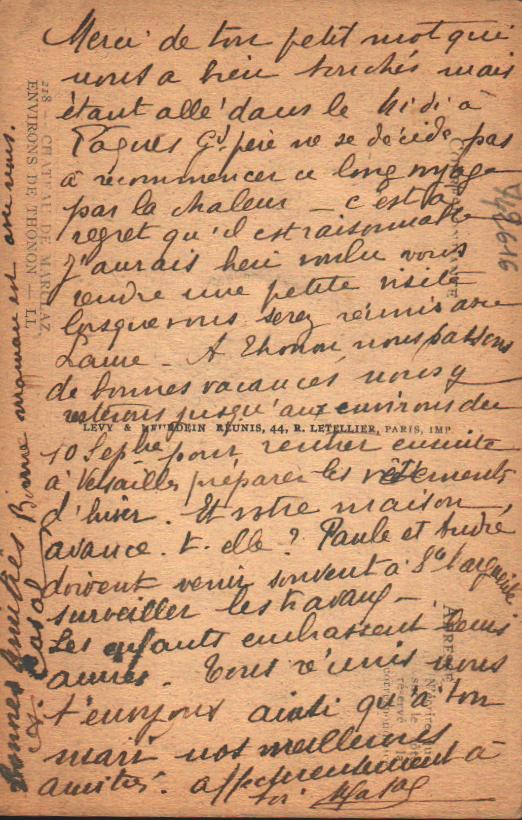 Merci de ton petit mot qui
nous a bien touchés mais
étant allé dans le Midi a
Pâques Gd père ne se décide pas
à recommencer ce long voyage
par la chaleur – c'est à
regret qu'il est raisonnable
J'aurais bien voulu vous
rendre une petite visite
lorsque vous serez réunis avec
Laure – A Thonon nous passons
de bonnes vacances, nous y
resterons jusqu'aux environs du
10 Septbre pour rentrer ensuite
à Versailles préparer les vêtements
d'hiver. Et votre maison,
avance-t-elle? Paule et André
doivent venir souvent à Ste
surveiller les travaux –
Les enfants embrassent leurs
amies. Tous réunis nous
t'envoyons ainsi qu'à ton
mari nos meilleures
amitiés. affectueusement à
toi
Bonnes Amitiés Bonne maman est avec nous.
218 – CHATEAU DE MARCLAZ
ENVIRONS DE THONON – LL.
LEVY & NEURDEIN RÉUNIS, 44, R. LETELLIER, PARIS, IMP.
CORRESPONDANCE
ADRESSE